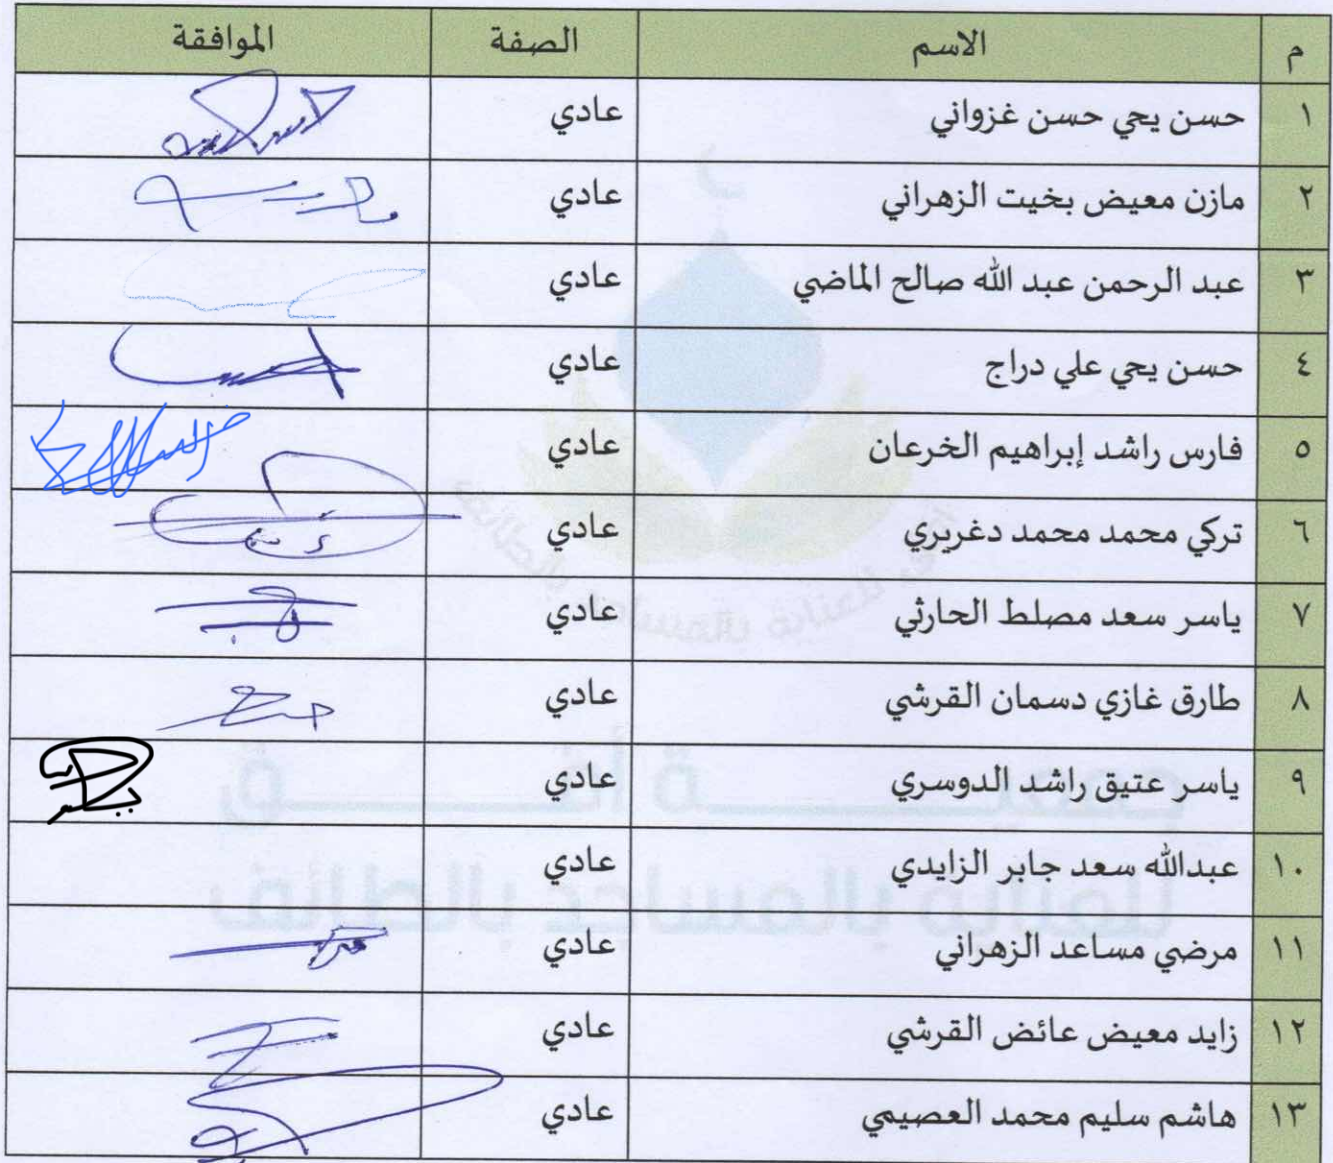 م الاسم الصفة الموافقة
١ حسن يحي حسن غزواني عادي
٢ مازن معيض بخيت الزهراني عادي
٣ عبد الرحمن عبد الله صالح الماضي عادي
٤ حسن يحي علي دراج عادي
٥ فارس راشد إبراهيم الخرعان عادي
٦ تركي محمد محمد دغريري عادي
٧ ياسر سعد مصلط الحارثي عادي
٨ طارق غازي دسمان القرشي عادي
٩ ياسر عتيق راشد الدوسري عادي
١٠ عبدالله سعد جابر الزايدي عادي
١١ مرضي مساعد الزهراني عادي
١٢ زايد معيض عائض القرشي عادي
١٣ هاشم سليم محمد العصيمي عادي
للعناية بالمساجد بالطائف